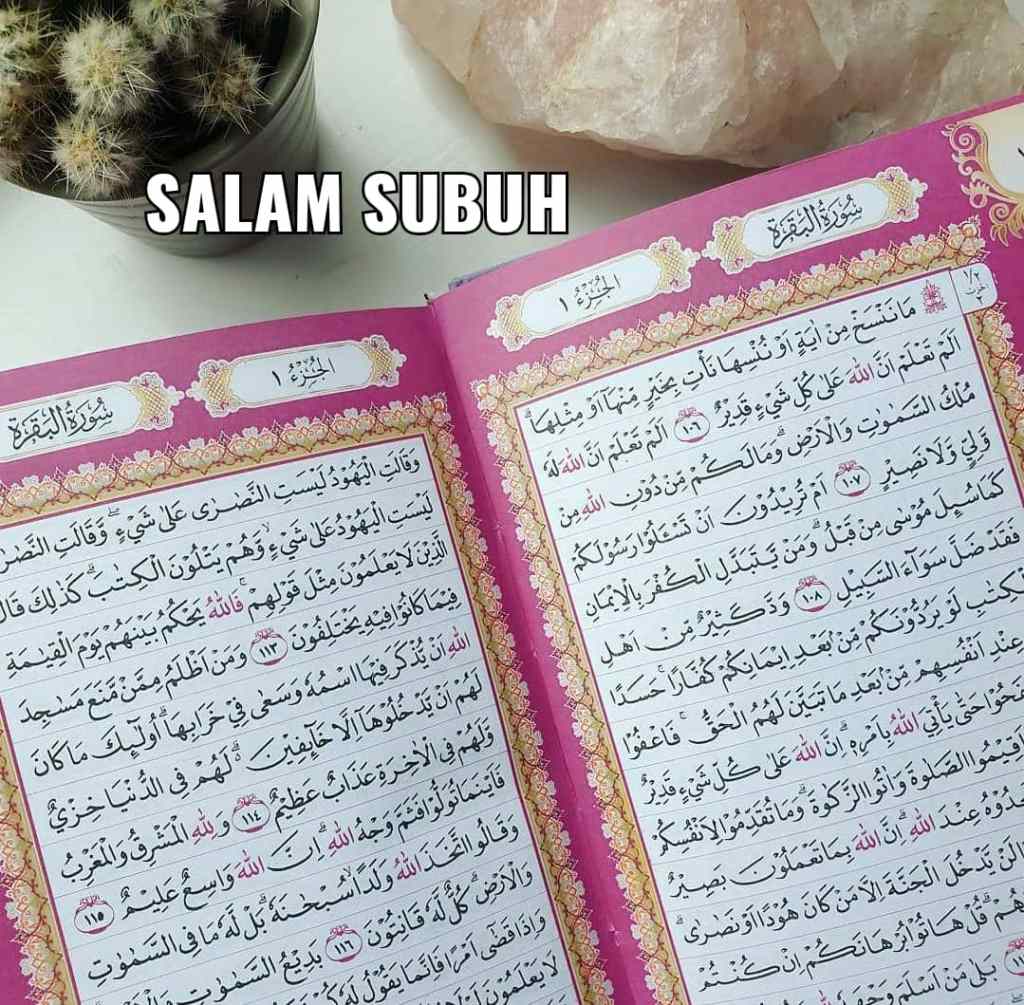 SALAM SUBUH
سُوْرَةُ الْبَقَرَةِ
الْجُزْءُ ١
مَا نَنْسَخْ مِنْ اٰيَةٍ اَوْ نُنْسِهَا نَأْتِ بِخَيْرٍ مِّنْهَآ اَوْ مِثْلِهَا ۗ
اَلَمْ تَعْلَمْ اَنَّ اللّٰهَ عَلٰى كُلِّ شَيْءٍ قَدِيْرٌ ١٠٦ اَلَمْ تَعْلَمْ اَنَّ اللّٰهَ لَهٗ
مُلْكُ السَّمٰوٰتِ وَالْاَرْضِ ۗ وَمَا لَكُمْ مِّنْ دُوْنِ اللّٰهِ مِنْ
وَّلِيٍّ وَّلَا نَصِيْرٍ ١٠٧ اَمْ تُرِيْدُوْنَ اَنْ تَسْـَٔلُوْا رَسُوْلَكُمْ
كَمَا سُىِٕلَ مُوْسٰى مِنْ قَبْلُ ۗ وَمَنْ يَّتَبَدَّلِ الْكُفْرَ بِالْاِيْمَانِ
فَقَدْ ضَلَّ سَوَاۤءَ السَّبِيْلِ ١٠٨ وَدَّ كَثِيْرٌ مِّنْ اَهْلِ
الْكِتٰبِ لَوْ يَرُدُّوْنَكُمْ مِّنْۢ بَعْدِ اِيْمَانِكُمْ كُفَّارًا ۚ حَسَدًا
عِنْدِ اَنْفُسِهِمْ مِّنْۢ بَعْدِ مَا تَبَيَّنَ لَهُمُ الْحَقُّ ۚ فَاعْفُوْا
حَتّٰى يَأْتِيَ اللّٰهُ بِاَمْرِهٖ ۗ اِنَّ اللّٰهَ عَلٰى كُلِّ شَيْءٍ قَدِيْرٌ
الصَّلٰوةَ وَاٰتُوا الزَّكٰوةَ ۗ وَمَا تُقَدِّمُوْا لِاَنْفُسِكُمْ
عِنْدَ اللّٰهِ ۗ اِنَّ اللّٰهَ بِمَا تَعْمَلُوْنَ بَصِيْرٌ
لَنْ يَّدْخُلَ الْجَنَّةَ اِلَّا مَنْ كَانَ هُوْدًا اَوْ نَصٰرٰى ۗ
قُلْ هَاتُوْا بُرْهَانَكُمْ اِنْ كُنْتُمْ
بَلٰى مَنْ اَسْلَمَ
الْجُزْءُ ١
سُوْرَةُ الْبَقَرَةِ
وَقَالَتِ الْيَهُوْدُ لَيْسَتِ النَّصٰرٰى عَلٰى شَيْءٍ ۖ وَّقَالَتِ
لَيْسَتِ الْيَهُوْدُ عَلٰى شَيْءٍ ۙ وَّهُمْ يَتْلُوْنَ الْكِتٰبَ ۗ كَذٰلِكَ قَالَ
الَّذِيْنَ لَا يَعْلَمُوْنَ مِثْلَ قَوْلِهِمْ ۚ فَاللّٰهُ يَحْكُمُ بَيْنَهُمْ يَوْمَ الْقِيٰمَةِ
فِيْمَا كَانُوْا فِيْهِ يَخْتَلِفُوْنَ ١١٣ وَمَنْ اَظْلَمُ مِمَّنْ مَّنَعَ مَسٰجِدَ
اللّٰهِ اَنْ يُّذْكَرَ فِيْهَا اسْمُهٗ وَسَعٰى فِيْ خَرَابِهَا ۗ اُولٰۤىِٕكَ مَا كَانَ
لَهُمْ اَنْ يَّدْخُلُوْهَآ اِلَّا خَاۤىِٕفِيْنَ ۗ لَهُمْ فِى الدُّنْيَا خِزْيٌ
وَّلَهُمْ فِى الْاٰخِرَةِ عَذَابٌ عَظِيْمٌ ١١٤ وَلِلّٰهِ الْمَشْرِقُ وَالْمَغْرِبُ
فَاَيْنَمَا تُوَلُّوْا فَثَمَّ وَجْهُ اللّٰهِ ۗ اِنَّ اللّٰهَ وَاسِعٌ عَلِيْمٌ ١١٥
وَقَالُوا اتَّخَذَ اللّٰهُ وَلَدًا ۙ سُبْحٰنَهٗ ۗ بَلْ لَّهٗ مَا فِى السَّمٰوٰتِ
وَالْاَرْضِ ۗ كُلٌّ لَّهٗ قَانِتُوْنَ ١١٦ بَدِيْعُ السَّمٰوٰتِ
وَاِذَا قَضٰٓى اَمْرًا فَاِنَّمَا يَقُوْلُ لَهٗ
لَا يَعْلَمُوْنَ